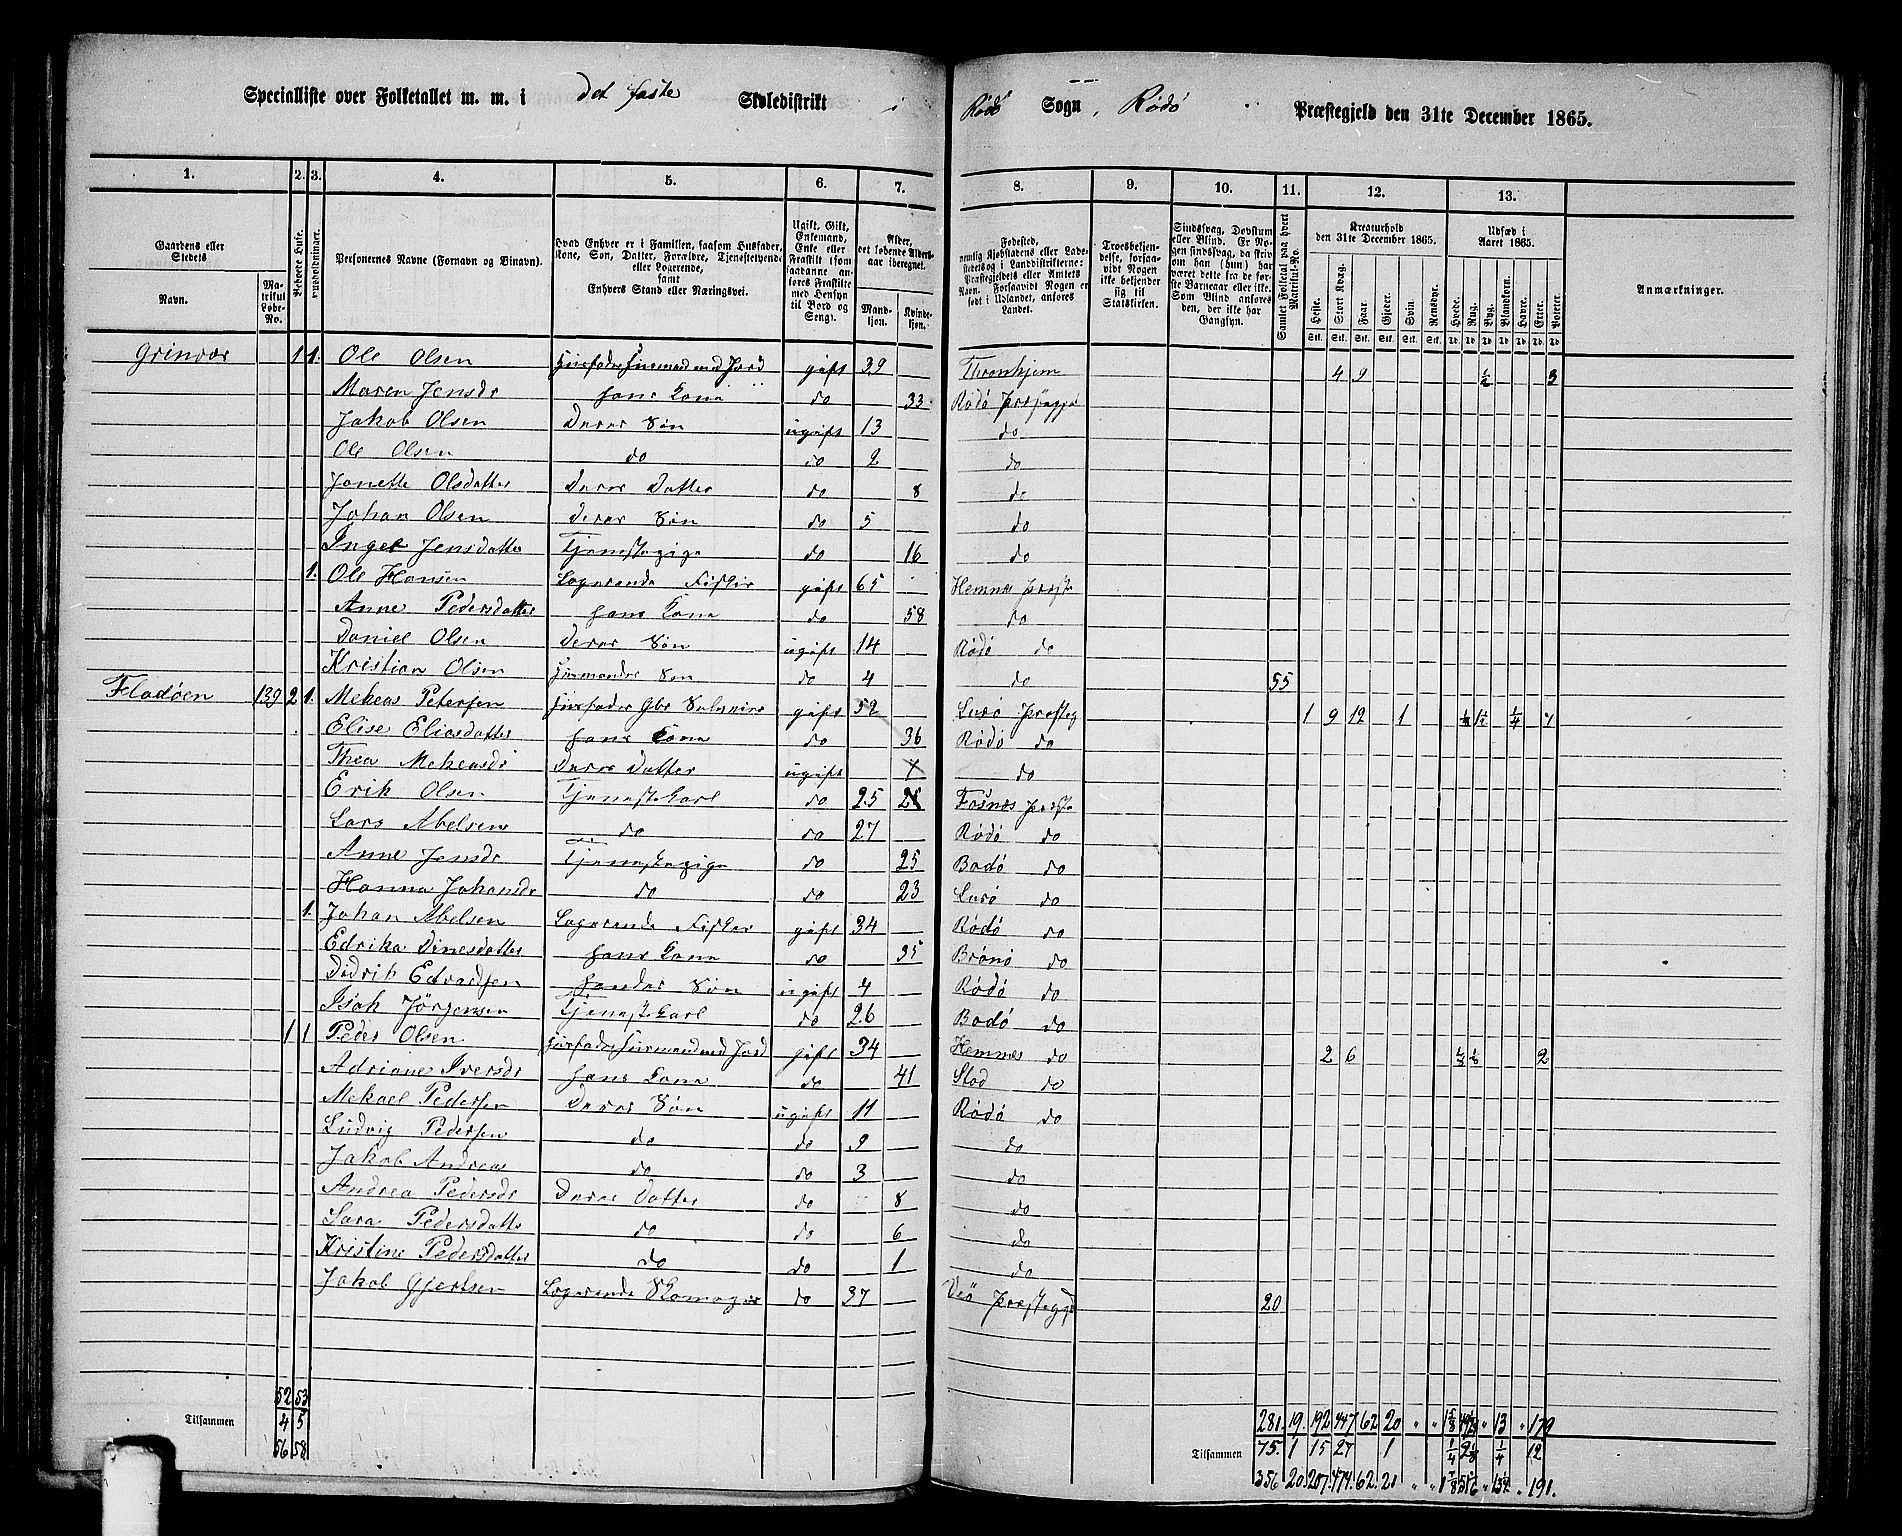 Specialliste over Folketallet m. m. i det faste Skoledistrikt i Rödö Sogn, Rödö Præstegjeld den 31te December 1865.
1. 2. 3. 4. 5. 6. 7. 8. 9. 10. 11. 12. 13.
Gaardens eller Stedets
Navn.
Matrikul Løbe-No.
Beboede Huse.
Huusholdninger.
Personernes Navne (Fornavn og Binavn).
Hvad Enhver er i Familien, saasom Husfader, Kone, Søn, Datter, Forældre, Tjenstetyende eller Logerende, samt Enhvers Stand eller Næringsvei.
Ugift, Gift, Enkemand, Enke eller Fraskilt
Alder, det løbende Alders-aar iberegnet.
Mandkjøn.
Kvindekjøn.
Fødested,
Troesbekjendelse, forsaavidt Nogen ikke bekjender sig til Statskirken.
Sindssvag, Døvstum eller Blind.
Samlet Folketal paa hvert Matrikul-No.
Kreaturhold den 31te December 1865.
Heste. Stort Kvæg. Faar. Gjeder. Svin. Rensdyr.
Udsæd i Aaret 1865.
Hvede. Rug. Byg. Blandkorn. Havre. Erter. Poteter.
Anmærkninger.
Grinvær 1 1. Ole Olsen Husfader Husmand med Jord gift 39 Thronhjem 4 9 ½ 3
Maren Jensdr hans Kone do 33 Rödö
Jakob Olsen Deres Søn ugift 13 do
Ole Olsen do do 2 do
Jonette Olsdatter Deres Datter do 8 do
Johan Olsen Deres Søn do 5 do
Inger Jensdatter Tjenestepige do 16 do
1. Ole Hansen Logerende Fisker gift 65 Hemnes
Anne Pedersdatter hans Kone do 58 do
Daniel Olsen Deres Søn ugift 14 Rödö do
Kristian Olsen Husmandes Søn do 4 do 55
Flodöen 139 2 1. Mekeas Petersen Husfader Gbr gift 52 Lurö Præsteg 1 9 12 1 ¼ 7
Elise Eliasdatter hans Kone do 36 Rödö do
Thea Mekeasdr Deres Datter ugift 7 do
Erik Olsen Tjenestekarl do 25 Fosnes
Lars Abelsen do do 27 Rödö do
Anne Jensdr Tjenestepige do 25 Bodö do
Hanna Johansdr do do 23 Lurö do
1. Johan Abelsen Logerende Fisker gift 34 Rödö do
Edrika Dinesdatter hans Kone do 35 Brönö do
Didrik Edvardsen Søn ugift 4 Rödö do
Isak Jörgensen Tjenestekarl do 26 Bodö do
1 1 Peder Olsen Husfader Husmand med Jord gift 34 Hemnes do 2 6 2
Adriane Iversdr hans Kone do 41 Stod do
Mekael Pedersen Deres Søn ugift 11 Rödö do
Ludvig Pedersen do do 9 do
Jakob Andreas do do 3 do
Andrea Pedersdr Deres Datter do 8 do
Sara Pedersdatter do do 6 do
Kristine Pedersdatter do do 1 do
Jakob Gjertsen Logerende Skomager do 37 Veö 20
52 53
Tilsammen 4 5
56 58
281. 19. 192 447. 62. 20 13 179
Tilsammen 75. 1 15 27 1 ¼ 12
356 20. 207. 474. 62. 21 191.